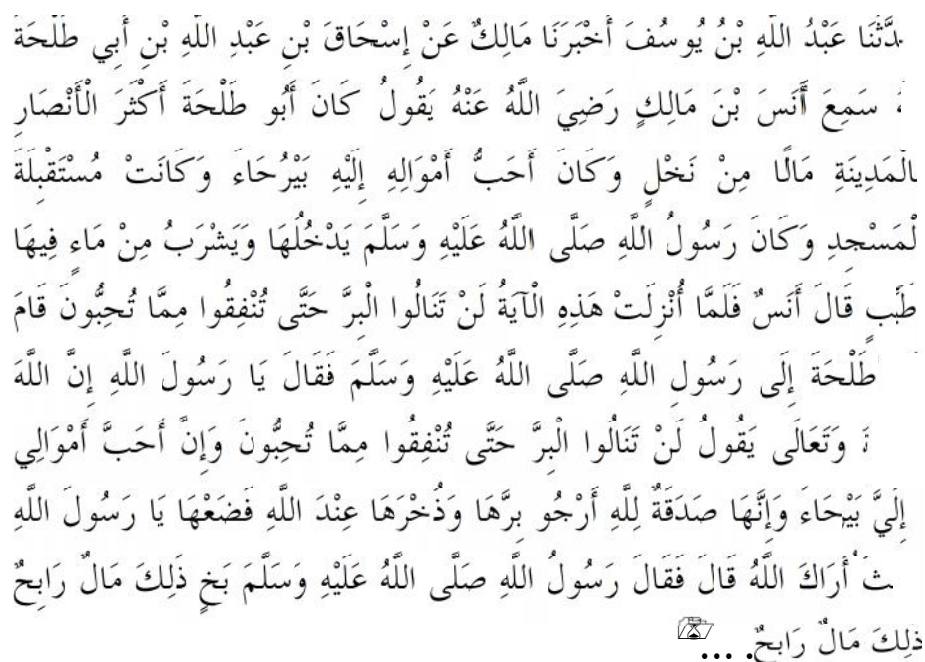 دَّثَنَا عَبْدُ اللَّهِ بْنُ يُوسُفَ أَخْبَرَنَا مَالِكٌ عَنْ إِسْحَاقَ بْنِ عَبْدِ اللَّهِ بْنِ أَبِي طَلْحَةَ
هُ سَمِعَ أَنَسَ بْنَ مَالِكٍ رَضِيَ اللَّهُ عَنْهُ يَقُولُ كَانَ أَبُو طَلْحَةَ أَكْثَرَ الْأَنْصَارِ
الْمَدِينَةِ مَالًا مِنْ نَخْلٍ وَكَانَ أَحَبُّ أَمْوَالِهِ إِلَيْهِ بَيْرُحَاءَ وَكَانَتْ مُسْتَقْبِلَةَ
لْمَسْجِدِ وَكَانَ رَسُولُ اللَّهِ صَلَّى اللَّهُ عَلَيْهِ وَسَلَّمَ يَدْخُلُهَا وَيَشْرَبُ مِنْ مَاءٍ فِيهَا
طَيِّبٍ قَالَ أَنَسٌ فَلَمَّا أُنْزِلَتْ هَذِهِ الْآيَةُ لَنْ تَنَالُوا الْبِرَّ حَتَّى تُنْفِقُوا مِمَّا تُحِبُّونَ قَامَ
طَلْحَةَ إِلَى رَسُولِ اللَّهِ صَلَّى اللَّهُ عَلَيْهِ وَسَلَّمَ فَقَالَ يَا رَسُولَ اللَّهِ إِنَّ اللَّهَ
وَتَعَالَى يَقُولُ لَنْ تَنَالُوا الْبِرَّ حَتَّى تُنْفِقُوا مِمَّا تُحِبُّونَ وَإِنَّ أَحَبَّ أَمْوَالِي
إِلَيَّ بَيْرُحَاءَ وَإِنَّهَا صَدَقَةٌ لِلَّهِ أَرْجُو بِرَّهَا وَذُخْرَهَا عِنْدَ اللَّهِ فَضَعْهَا يَا رَسُولَ اللَّهِ
ثُ أَرَاكَ اللَّهُ قَالَ فَقَالَ رَسُولُ اللَّهِ صَلَّى اللَّهُ عَلَيْهِ وَسَلَّمَ بَخٍ ذَلِكَ مَالٌ رَابِحٌ
ذَلِكَ مَالٌ رَابِحٌ. ...